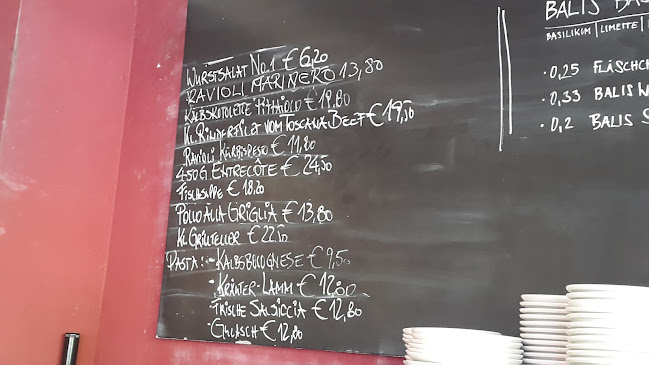 Wurstsalat No.1 €6,20
Ravioli Marinero 13,80
Kalbskotolete Pizzaiolo €19,80
Kl. Rinderfilet vom Toscana Beef €19,50
Ravioli Kürbispesto €11,80
450g Entrecôte €24,50
Fischsuppe €18,20
Pollo alla Griglia €13,80
Kl Grillteller €22,50
Pasta: - Kalbsbolognese €9,50
- Kräuter-Lamm €12,80
- Frische Salsiccia €12,80
- Gulasch €12,80
BALIS BAS
BASILIKUM | LIMETTE |
· 0,25 FLÄSCHC
· 0,33 BALIS
· 0,2 BALIS S